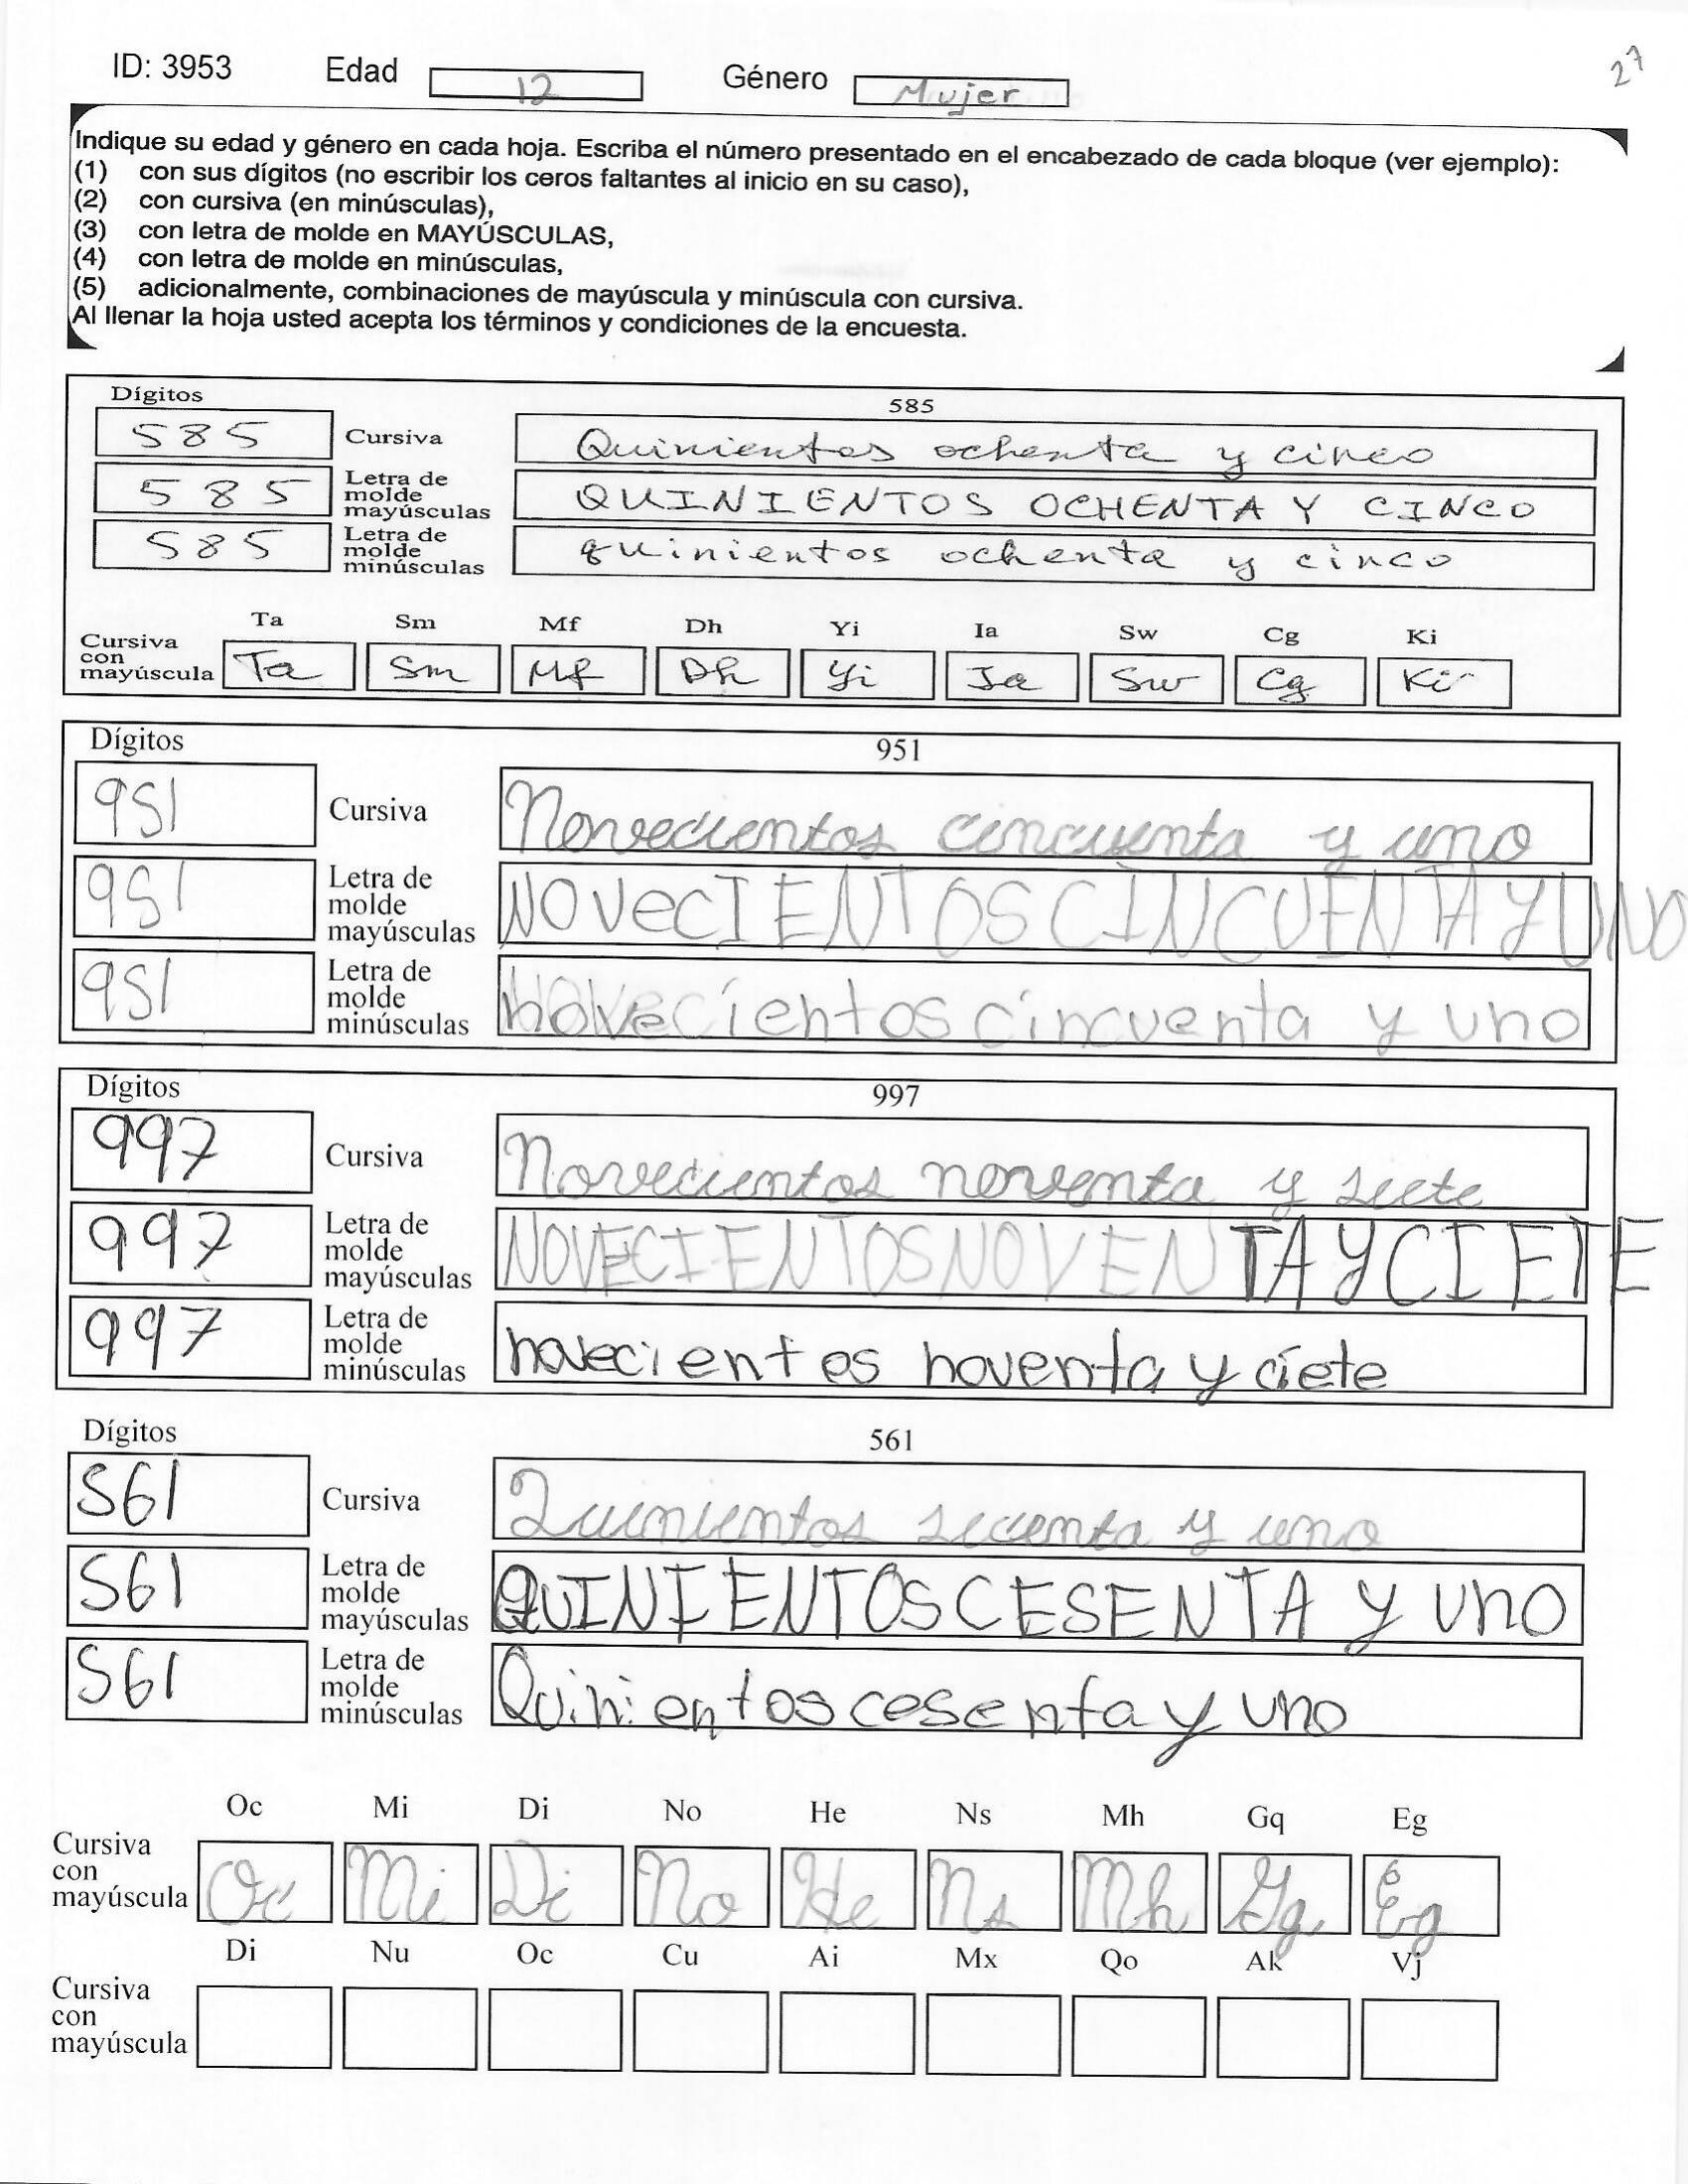 ID: 3953 Edad 12 Género Mujer 27
Indique su edad y género en cada hoja. Escriba el número presentado en el encabezado de cada bloque (ver ejemplo):
(1) con sus dígitos (no escribir los ceros faltantes al inicio en su caso),
(2) con cursiva (en minúsculas),
(3) con letra de molde en MAYÚSCULAS,
(4) con letra de molde en minúsculas,
(5) adicionalmente, combinaciones de mayúscula y minúscula con cursiva.
Al llenar la hoja usted acepta los términos y condiciones de la encuesta.
Dígitos 585
585 Cursiva Quinientos ochenta y cinco
585 Letra de molde mayúsculas QUINIENTOS OCHENTA Y CINCO
585 Letra de molde minúsculas quinientos ochenta y cinco
Ta Sm Mf Dh Yi Ia Sw Cg Ki
Cursiva con mayúscula Ta Sm Mf Dh Yi Ia Sw Cg Ki
Dígitos 951
951 Cursiva Novecientos cincuenta y uno
951 Letra de molde mayúsculas NOVeCIENTOS CINCUENTA Y UNO
951 Letra de molde minúsculas novecientos cincuenta y uno
Dígitos 997
997 Cursiva Novecientos noventa y siete
997 Letra de molde mayúsculas NOVECIENTOS NOVENTA Y CIETE
997 Letra de molde minúsculas novecientos noventa y ciete
Dígitos 561
561 Cursiva Quinientos secenta y uno
561 Letra de molde mayúsculas QUINIENTOS CESENTA y uno
561 Letra de molde minúsculas Quinientos cesenta y uno
Oc Mi Di No He Ns Mh Gq Eg
Cursiva con mayúscula Oc Mi Di No He Ns Mh Gq Eg
Di Nu Oc Cu Ai Mx Qo Ak Vj
Cursiva con mayúscula